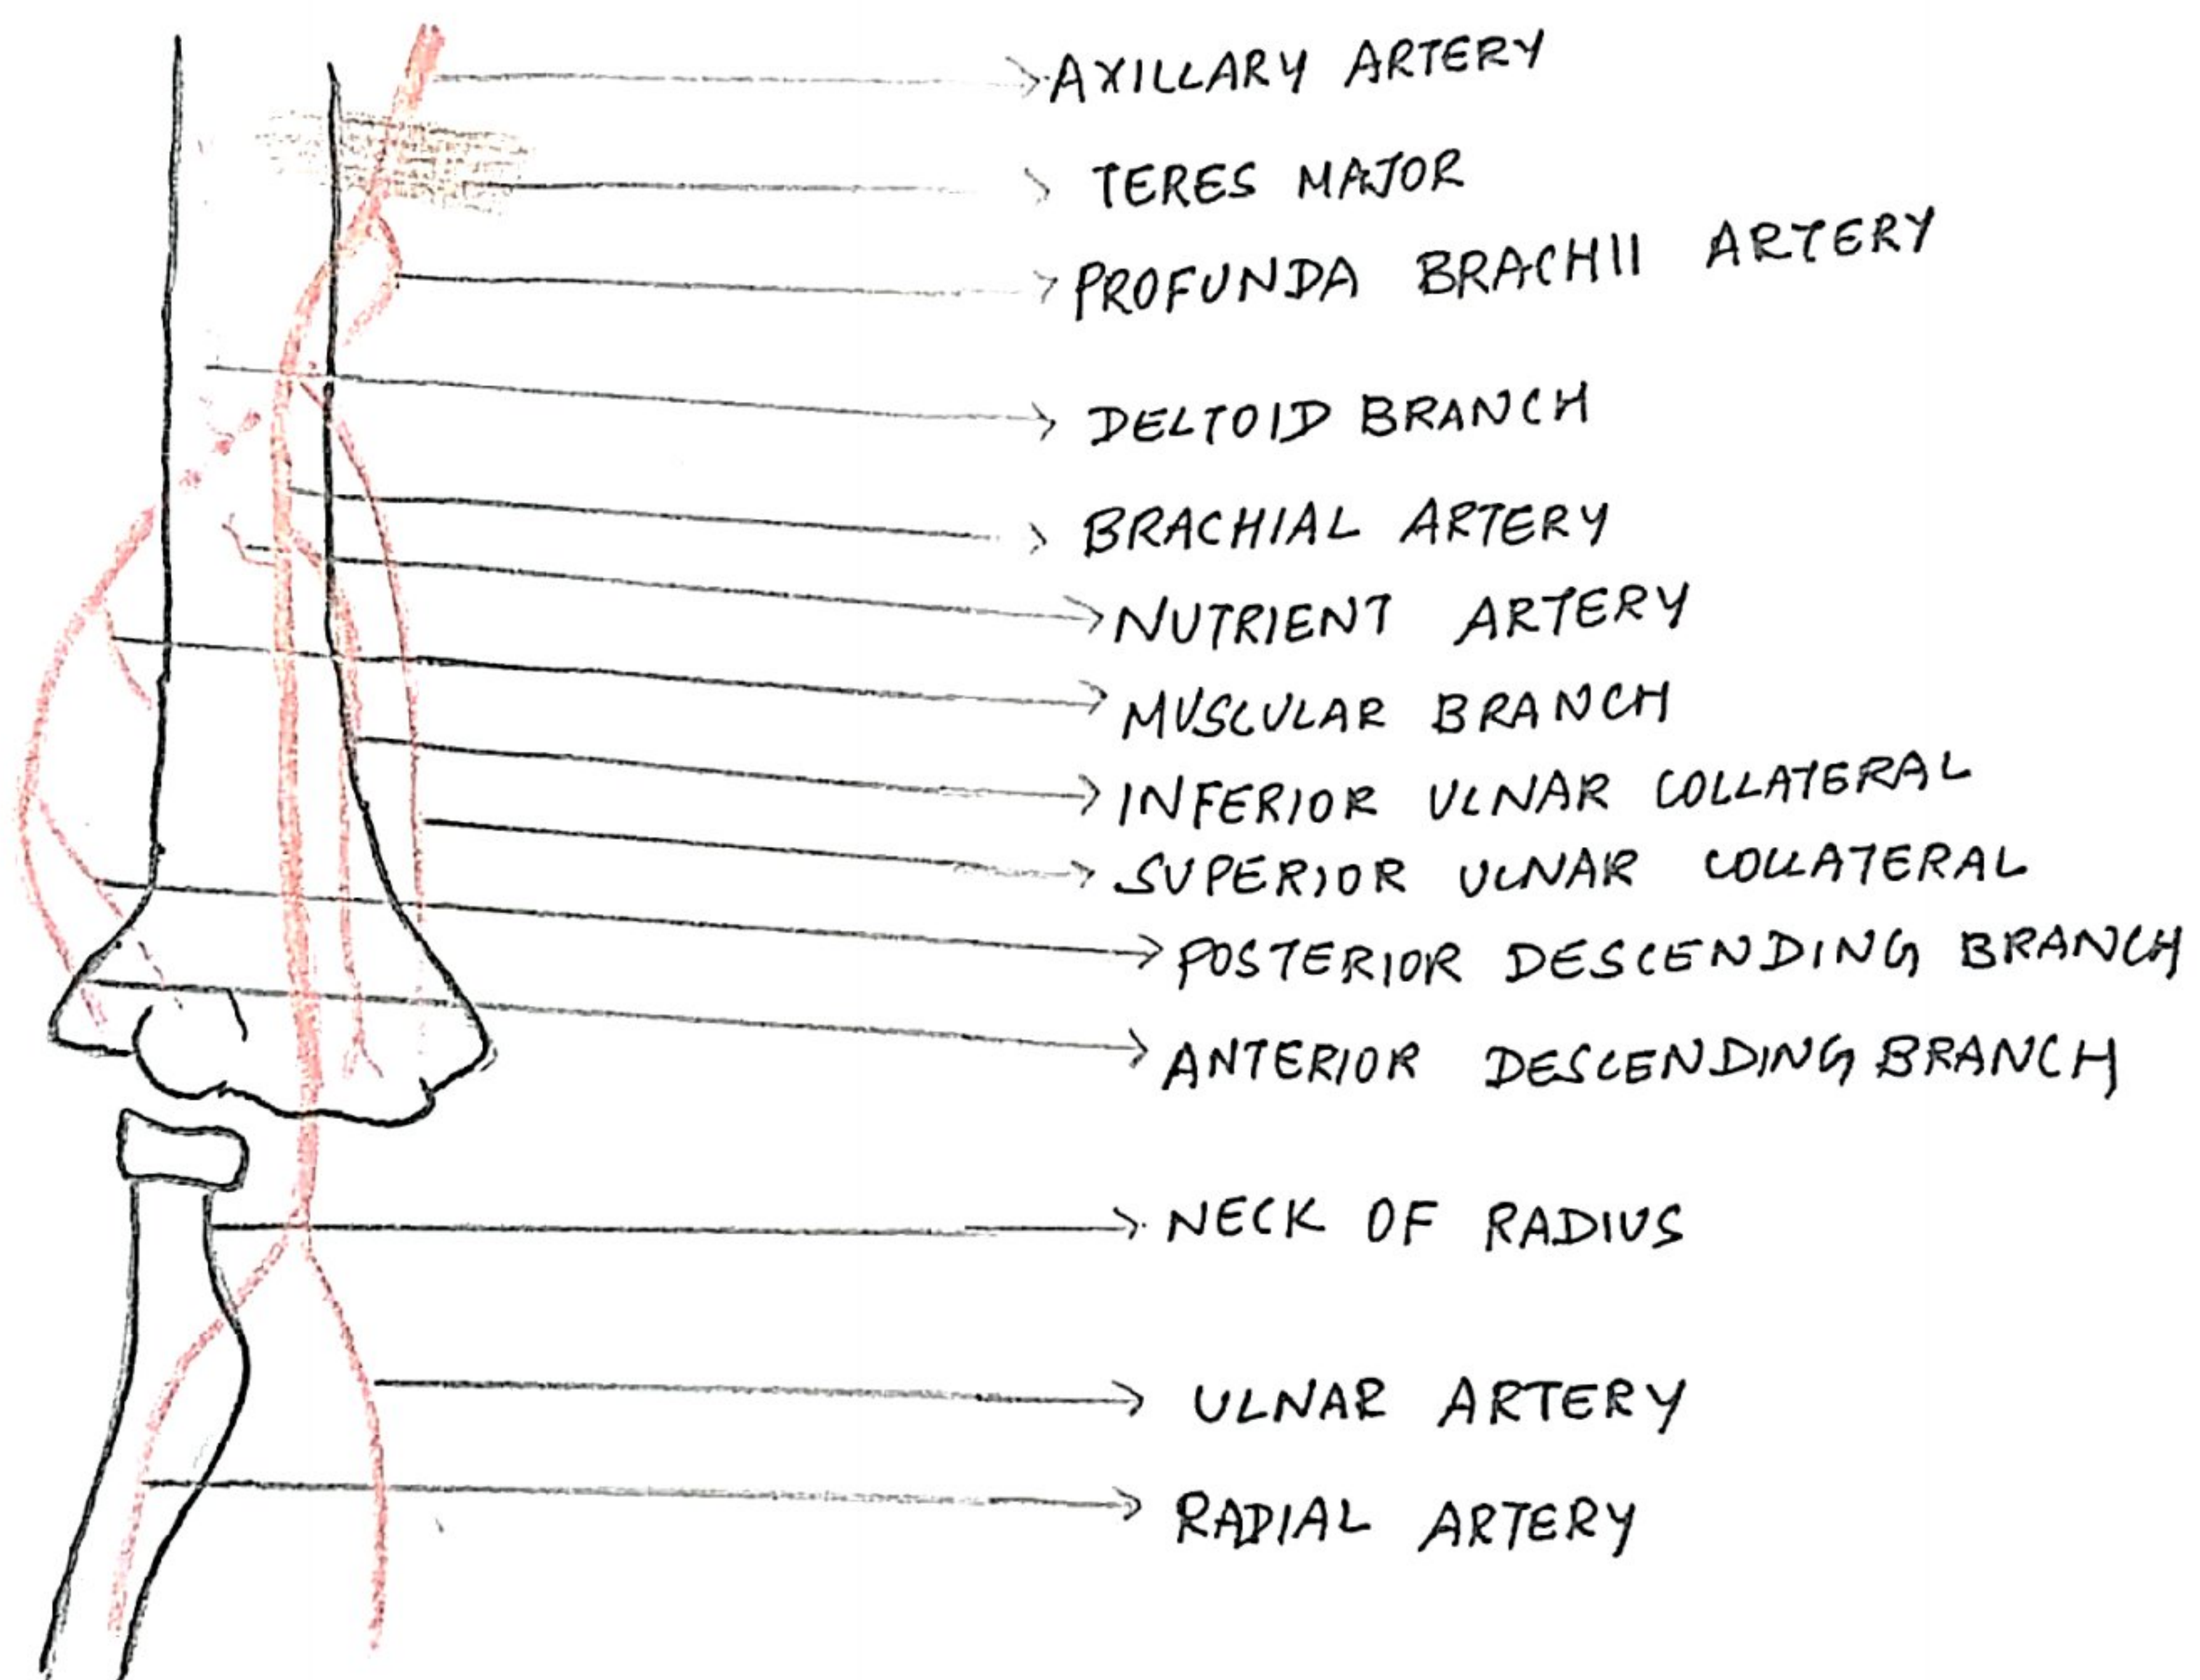 AXILLARY ARTERY
TERES MAJOR
PROFUNDA BRACHII ARTERY
DELTOID BRANCH
BRACHIAL ARTERY
NUTRIENT ARTERY
MUSCULAR BRANCH
INFERIOR ULNAR COLLATERAL
SUPERIOR ULNAR COLLATERAL
POSTERIOR DESCENDING BRANCH
ANTERIOR DESCENDING BRANCH
NECK OF RADIUS
ULNAR ARTERY
RADIAL ARTERY